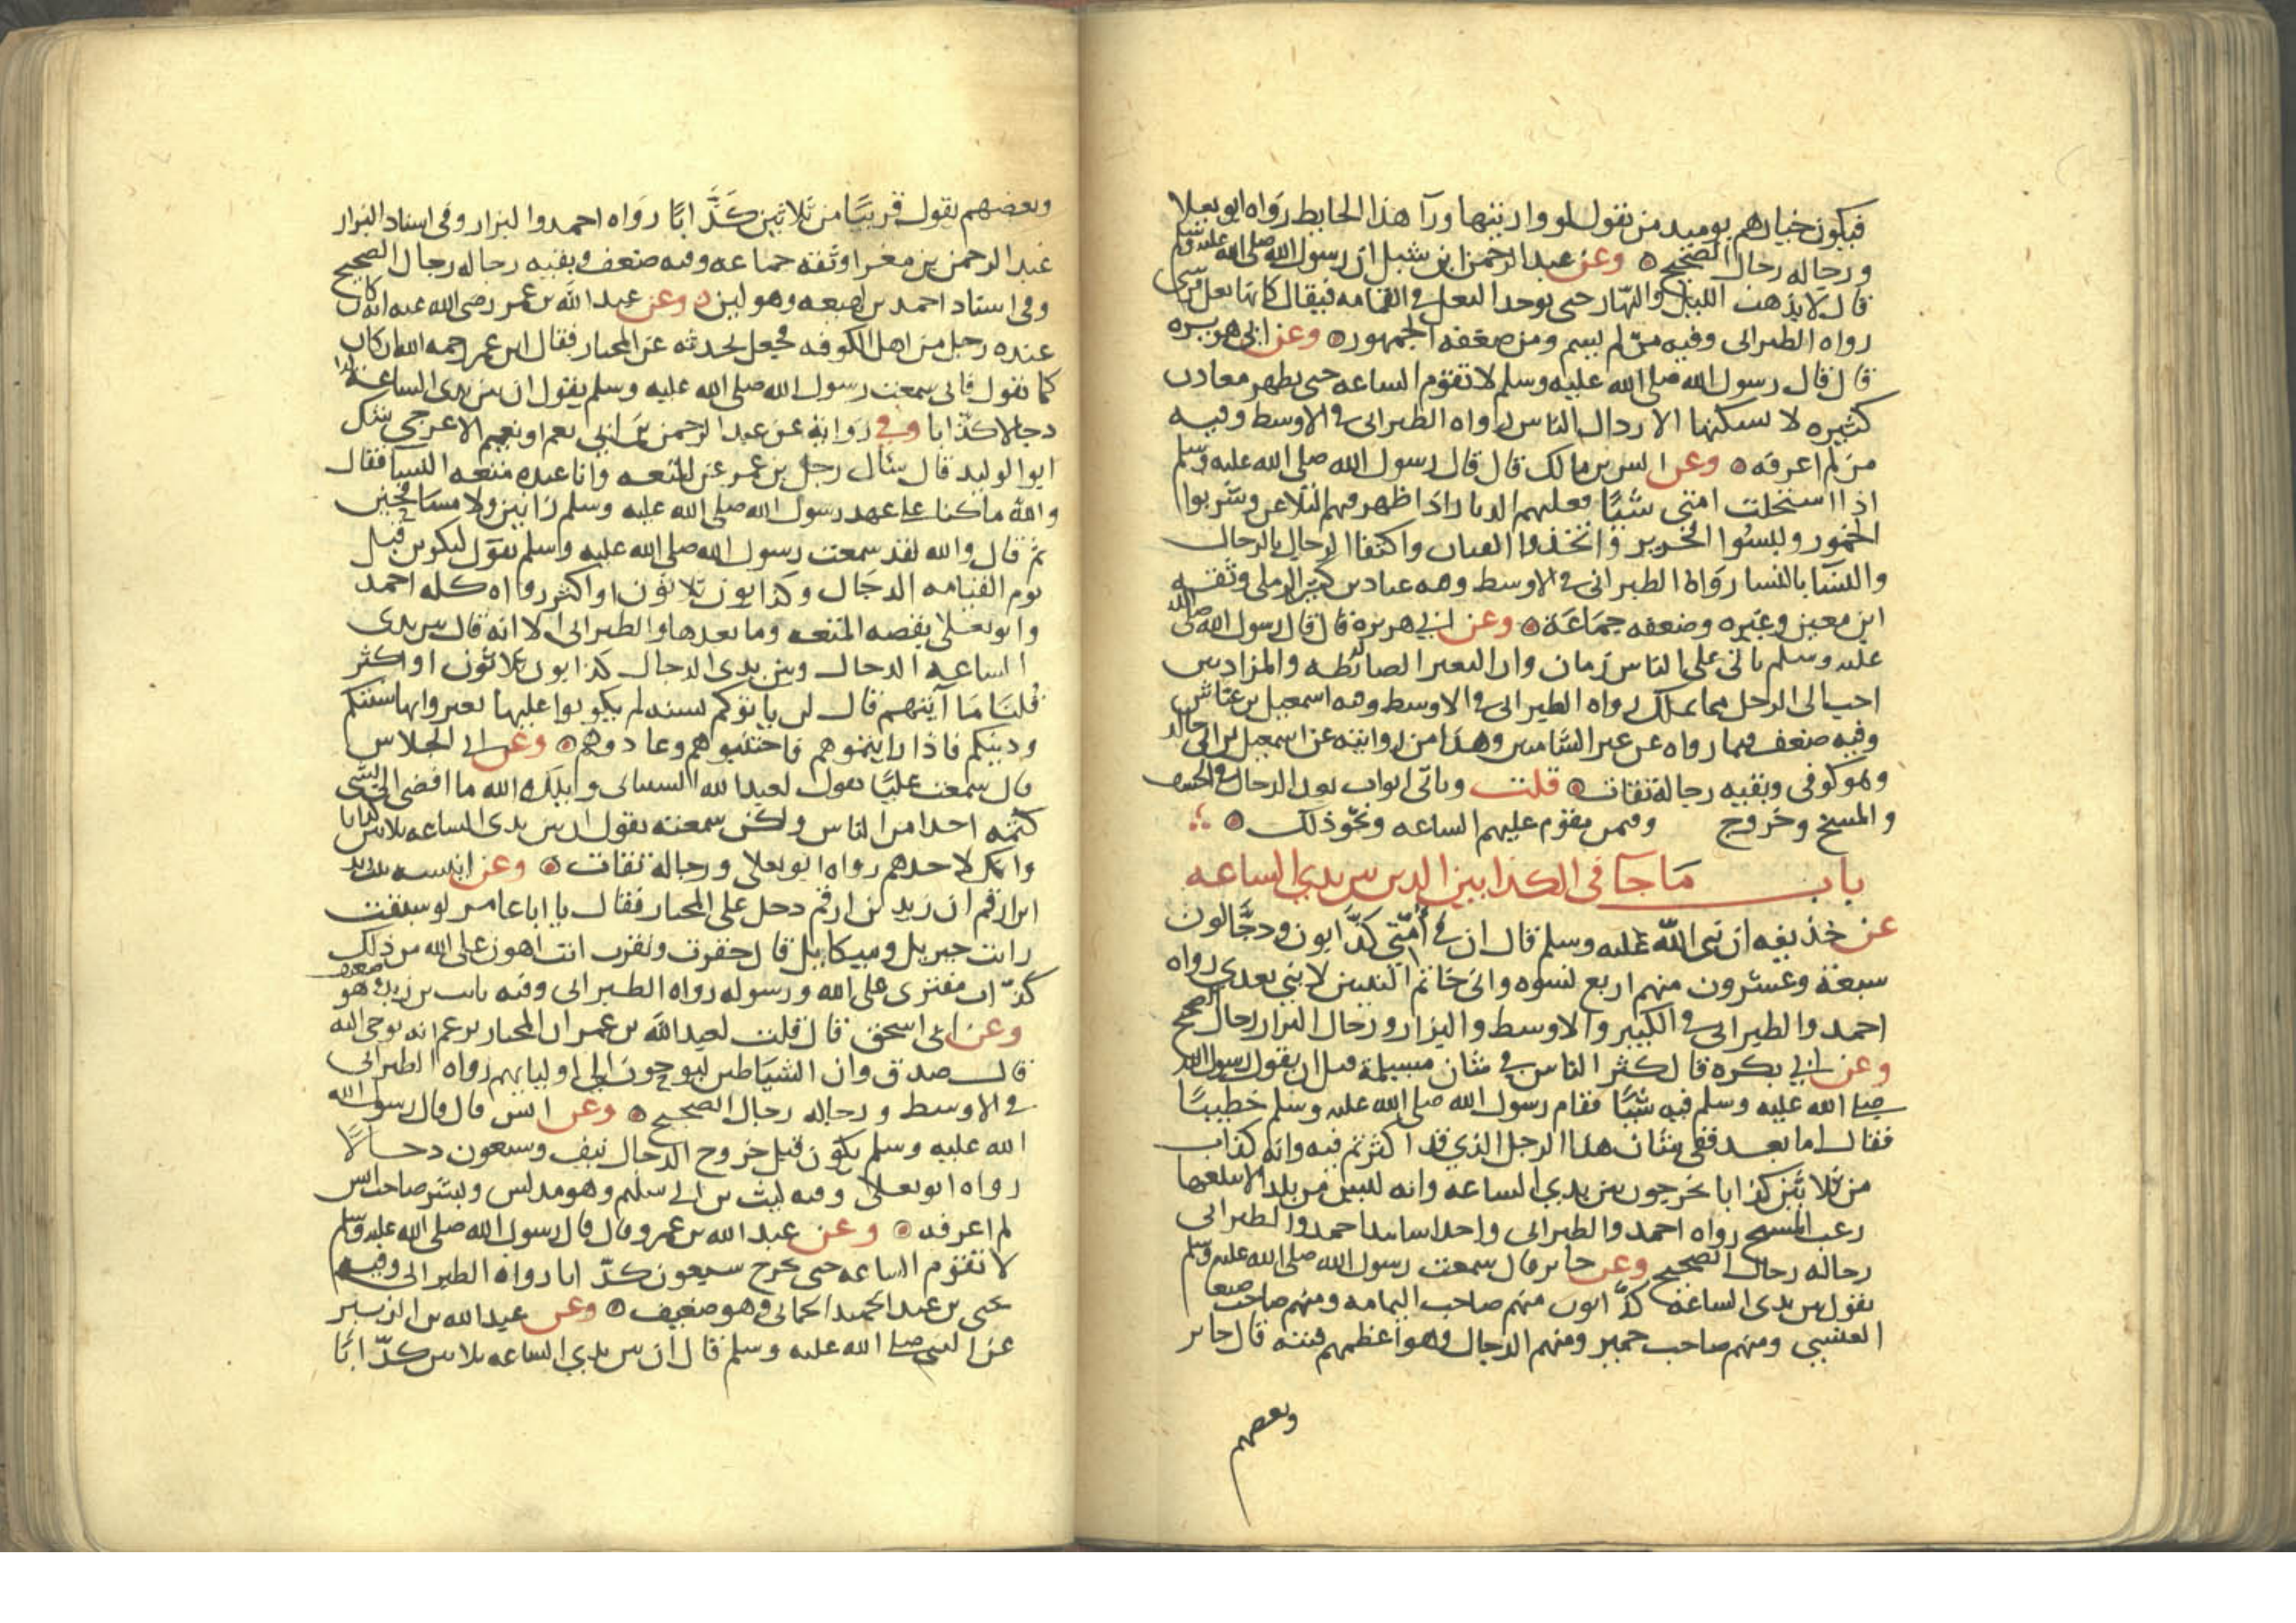 فيكون خيارهم يوميد من يقول لو واريتها ورآ هذا الحايط رواه ابو يعلا
ورجاله رجال الصحيح وعن عبد الرحمن ابن شبل ان رسول الله صلى الله عليه وسلم
قال لا يذهب الليل والنهار حتى يوجد النعل في القمامه فيقال كانها نعل قرشي
رواه الطبراني وفيه من لم يسم ومن ضعفه الجمهور وعن ابي هريره
قال قال رسول الله صلى الله عليه وسلم لا تقوم الساعه حتى يظهر معادن
كثيره لا يسكنها الا ردال الناس رواه الطبراني في الاوسط وفيه
من لم اعرفه وعن انس بن مالك قال قال رسول الله صلى الله عليه وسلم
اذا استحلت امتي ستا فعليهم الدمار اذا ظهر فيهم التلاعن وشربوا
الخمور ولبسوا الحرير واتخذوا القيان واكتفا الرجال بالرجال
والنسا بالنسا رواه الطبراني في الاوسط وفيه عباد بن كثير الرملي وثقه
ابن معين وغيره وضعفه جماعة وعن ابي هريرة قال قال رسول الله صلى الله
عليه وسلم ياتي على الناس زمان
احب الى الرجل مما يملك رواه الطبراني في الاوسط وفيه اسمعيل بن عياش
وفيه ضعف فيما رواه عن غير الشاميين وهذا من روايته عن اسمعيل بن ابي خالد
وهو كوفي وبقيه رجاله ثقات قلت وياتي ابواب نحو الدجال والخسف
والمسخ وخروج وفيمن تقوم عليهم الساعه ونحو ذلك
باب ما جآ في الكذابين الذين بين يدي الساعه
عن حذيفه ان نبي الله عليه وسلم قال ان في أمتي كذابون ودجالون
سبعة وعشرون منهم اربع نسوه واني خاتم النبيين لا نبي بعدي رواه
احمد والطبراني في الكبير والاوسط والبزار ورجال البزار رجال الصحيح
وعن ابي بكره قال كثر الناس في شان مسيلمة قبل ان يقول رسول الله
صلى الله عليه وسلم فيه شيا فقام رسول الله صلى الله عليه وسلم خطيبا
فقال اما بعد ففي شان هذا الرجل الذي قد اكثرتم فيه وانه كذاب
من ثلاثين كذابا يخرجون بين يدي الساعه وانه ليس من بلد الا يبلغها
رعب المسيح رواه احمد والطبراني واحد اسانيد احمد والطبراني
رجاله رجال الصحيح وعن جابر قال سمعت رسول الله صلى الله عليه وسلم
يقول بين يدي الساعة كذابون منهم صاحب اليمامه ومنهم صاحب صنعا
العنسي ومنهم صاحب حمير ومنهم الدجال وهو اعظمهم فتنه قال جابر
وبعضهم
وبعضهم يقول قريبا من ثلاثين كذابا رواه احمد والبزار وفي اسناد البزار
عبد الرحمن بن مغرا وثقه جماعه وفيه ضعف وبقيه رجاله رجال الصحيح
وفي اسناد احمد بن لهيعه وهو لين وعن عبد الله بن عمر رضي الله عنه انه كان
عنده رجل من اهل الكوفه فجعل يحدثه عن المختار فقال ابن عمر رحمه الله ان كان
كما تقول فاني سمعت رسول الله صلى الله عليه وسلم يقول ان بين يدي الساعة
دجالا كذابا وفي رواية عن عبد الرحمن بن ابي نعم او نعيم الاعرجي شك
ابو الوليد قال سئال رجل بن عمر عن المتعه وانا عنده متعه النسا فقال
والله ما كنا على عهد رسول الله صلى الله عليه وسلم زانين ولا مسافحين
ثم قال والله لقد سمعت رسول الله صلى الله عليه وسلم يقول ليكونن قبل
يوم القيامه الدجال وكذابون ثلاثون او اكثر رواه كله احمد
وابو يعلى بقصه المتعه وما بعدها والطبراني الا انه قال بين يدي
الساعه الدجال وبين يدي الدجال كذابون ثلاثون او اكثر
قلنا ما آيتهم قال ان ياتوكم بسنه لم يكونوا عليها يغيروا بها سنتكم
ودينكم فاذا رايتموهم فاجتنبوهم وعادوهم وعن ابي الجلاس
قال سمعت عليا يقول لعبد الله السبائي ويلك والله ما افضى الي بشي
كتمه احدا من الناس ولكن سمعته يقول ان بين يدي الساعه ثلاثين كذابا
وانك لاحدهم رواه ابو يعلى ورجاله ثقات وعن انيسه بنت زيد
ابن ارقم ان زيد بن ارقم دخل على المختار فقال يا ابا عامر لو سبقت
رايت جبريل وميكايل قال حقرت ونقرت انت اهون على الله من ذلك
كذاب مفتري على الله ورسوله رواه الطبراني وفيه ثابت بن زيد وهو ضعيف
وعن ابي اسحق قال قلت لعبد الله بن عمر ان المختار يزعم انه يوحى اليه
قال صدق وان الشياطين ليوحون الى اوليايهم رواه الطبراني
في الاوسط ورجاله رجال الصحيح وعن انس قال قال رسول الله
الله عليه وسلم يكون قبل خروج الدجال نيف وسبعون دجالا
رواه ابو يعلى وفيه ليث بن ابي سليم وهو مدلس وبشر صاحب انس
لم اعرفه وعن عبد الله بن عمرو قال قال رسول الله صلى الله عليه وسلم
لا تقوم الساعه حتى يخرج سبعون كذابا رواه الطبراني وفيه
يحيى بن عبد الحميد الحماني وهو ضعيف وعن عبد الله بن الزبير
عن النبي صلى الله عليه وسلم قال ان بين يدي الساعه ثلاثين كذابا